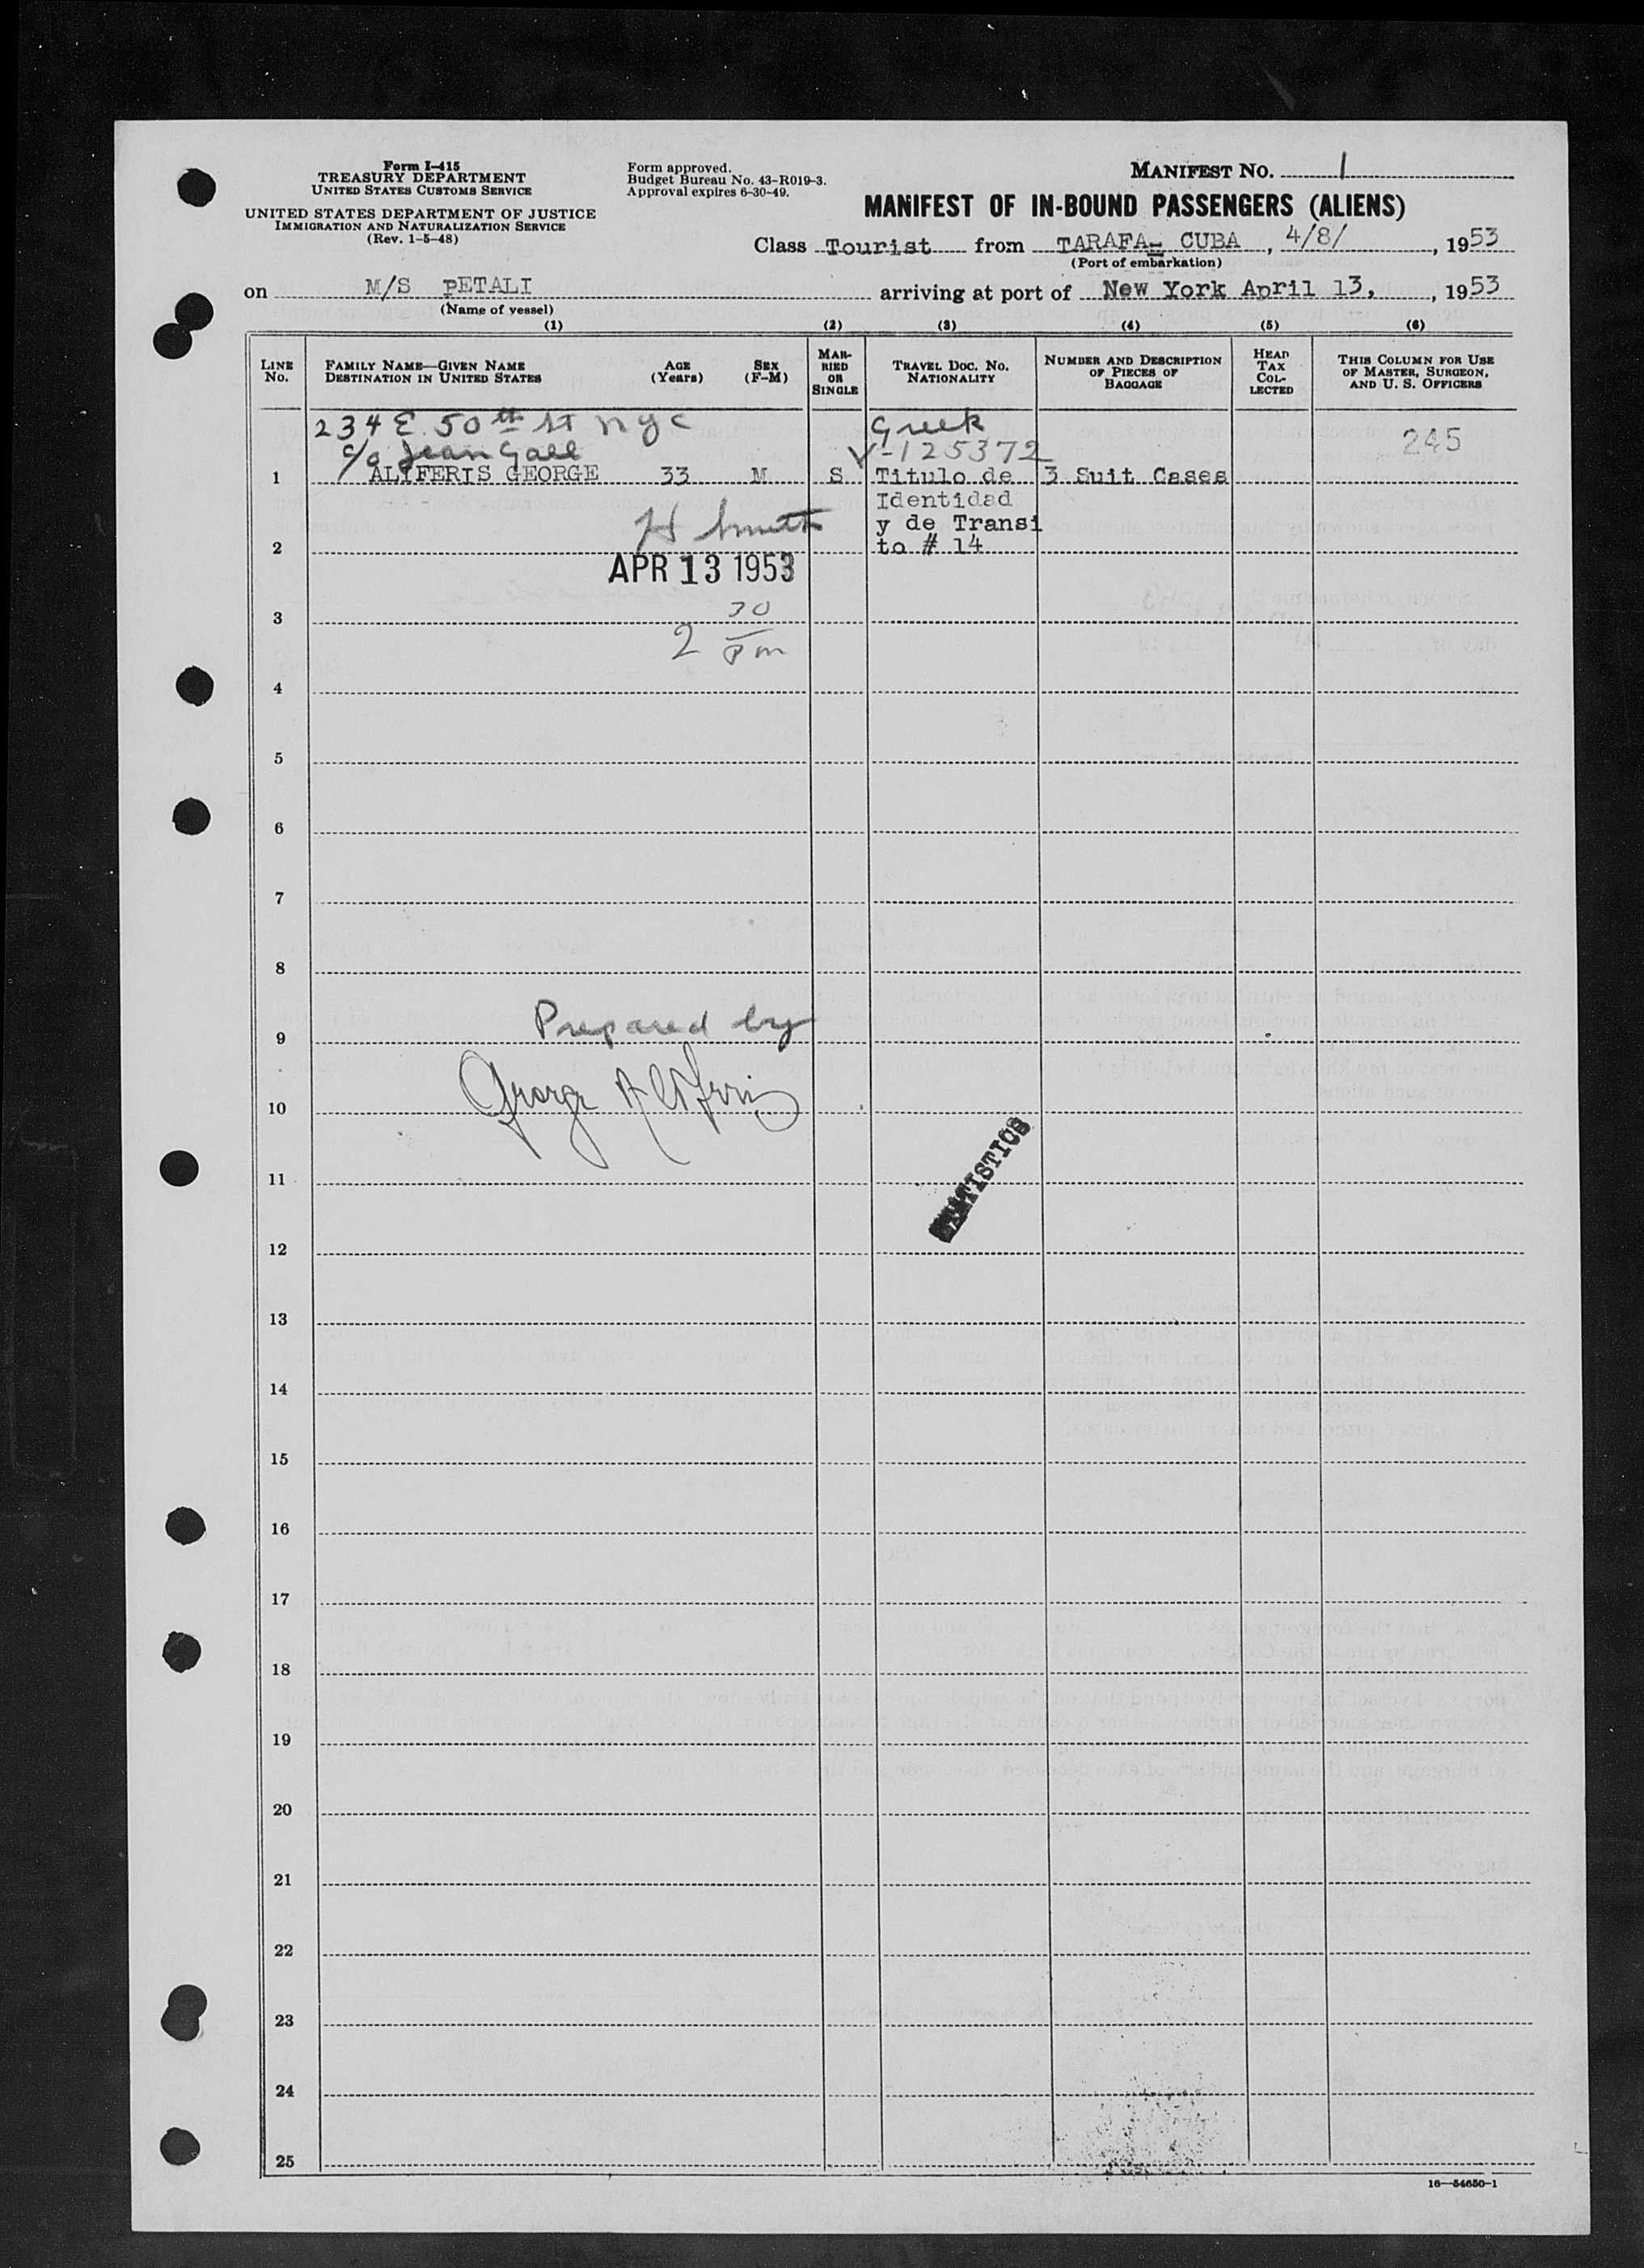 Form I-415
TREASURY DEPARTMENT
UNITED STATES CUSTOMS SERVICE
UNITED STATES DEPARTMENT OF JUSTICE
IMMIGRATION AND NATURALIZATION SERVICE
(Rev. 1-5-48)
Form approved.
Budget Bureau No. 43-R019-3.
Approval expires 6-30-49.
MANIFEST No. 1
MANIFEST OF IN-BOUND PASSENGERS (ALIENS)
Class Tourist from TARAFA- CUBA, 4/8/, 1953
(Port of embarkation)
on M/S PETALI arriving at port of New York April 13, , 1953
(Name of vessel)
(1) (2) (3) (4) (5) (6)
LINE No. FAMILY NAME—GIVEN NAME DESTINATION IN UNITED STATES AGE (Years) SEX (F-M) MARRIED OR SINGLE TRAVEL DOC. NO. NATIONALITY NUMBER AND DESCRIPTION OF PIECES OF BAGGAGE HEAD TAX COLLECTED THIS COLUMN FOR USE OF MASTER, SURGEON, AND U. S. OFFICERS
234 E. 50th St NYC Greek
c/o Jean Gall V-125372 245
1 ALIFERIS GEORGE 33 M S Titulo de 3 Suit Cases
Identidad
H Smith y de Transi
2 to # 14
APR 13 1953
3
2 30 Pm
4
5
6
7
8
Prepared by
9
George Aliferis
10
STATISTICS
11
12
13
14
15
16
17
18
19
20
21
22
23
24
25
16—54650-1